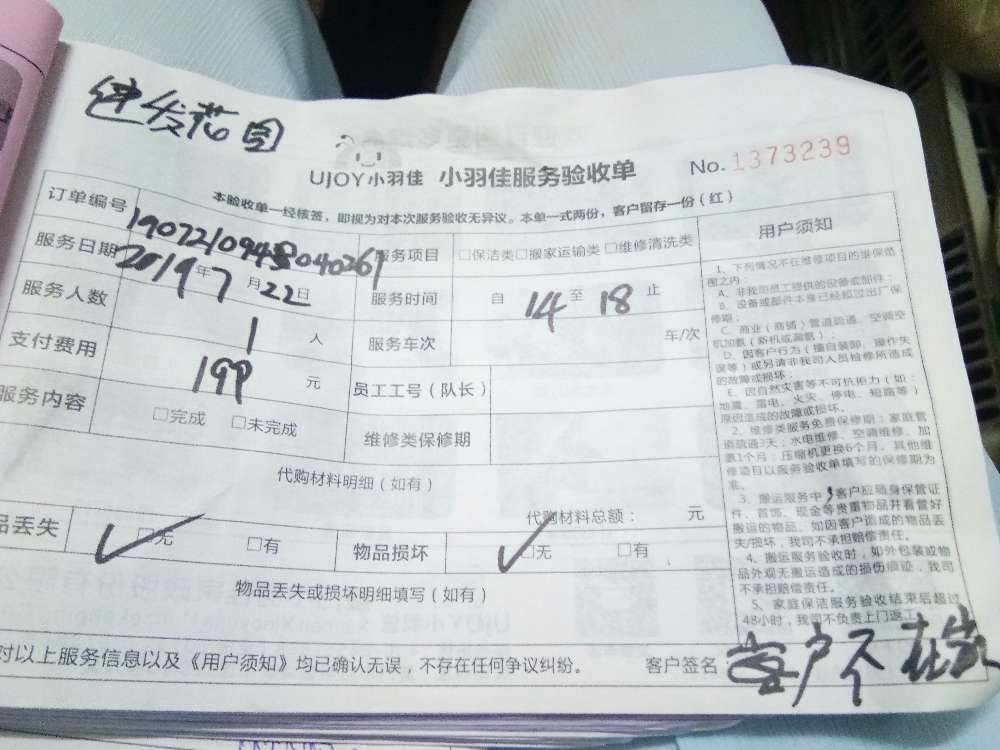 建发花园
UJOY小羽佳 小羽佳服务验收单
No.1373239
本验收单一经核签，即视为对本次服务验收无异议。本单一式两份，客户留存一份（红）
订单编号
服务项目 □保洁类□搬家运输类□维修清洗类
服务日期 2019年7月22日
服务时间 自14至18止
服务人数 1人
服务车次 车/次
支付费用 199元
员工工号（队长）
服务内容 □完成 □未完成
维修类保修期
代购材料明细（如有）
代购材料总额： 元
品丢失 □无 □有
物品损坏 □无 □有
物品丢失或损坏明细填写（如有）
对以上服务信息以及《用户须知》均已确认无误，不存在任何争议纠纷。
客户签名： 客户不在家
用户须知
1、下列情况不在维修项目的维保范
围之内：
A、非我司员工提供的设备或部件；
B、设备或部件本身已经超过出厂保
修期；
C、商业（商铺）管道疏通、空调空
机加氨（新机或漏氨）；
D、因客户行为（擅自装卸、操作失
误等）或另请非我司人员检修所造成
的故障或损坏；
E、因自然灾害等不可抗拒力（如：
地震、雷电、火灾、停电、短路等）
原因造成的故障或损坏。
2、维修类服务免费保修期：家庭管
道疏通3天；水电维修、空调维修、加
氨1个月；压缩机更换6个月。其他维
修项目以服务验收单填写的保修期为
准。
3、搬运服务中，客户应随身保管证
件、首饰、现金等贵重物品并看管好
搬运的物品。如因客户造成的物品丢
失/损坏，我司不承担赔偿责任。
4、搬运服务验收时，如外包装或物
品外观无搬运造成的损伤痕迹，我司
不承担赔偿责任。
5、家庭保洁服务验收结束后超过
48小时，我司不负责上门返工。